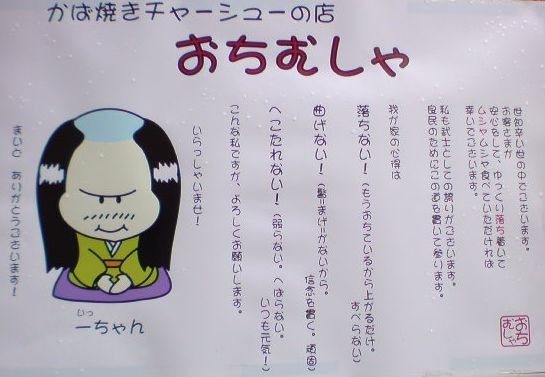 かば焼きチャーシューの店
おちむしゃ
世知辛い世の中でございます。
お客さまが
安心をして、ゆっくり落ち着いて
ムシャムシャ食べていただければ
幸いでございます。
私も武士としての誇りがございます。
良民のためにこの道を貫いて参ります。
我が家の心得は
落ちない！（もうおちているから上がるだけ。
すべらない）
曲げない！（髷＝まげ＝がないから。
信念を貫く。頑固）
へこたれない！（弱らない。へばらない。
いつも元気！）
こんな私ですが、よろしくお願いします。
いらっしゃいませ！
まいど ありがとうございます！
いっ
一ちゃん
おち
むしゃ